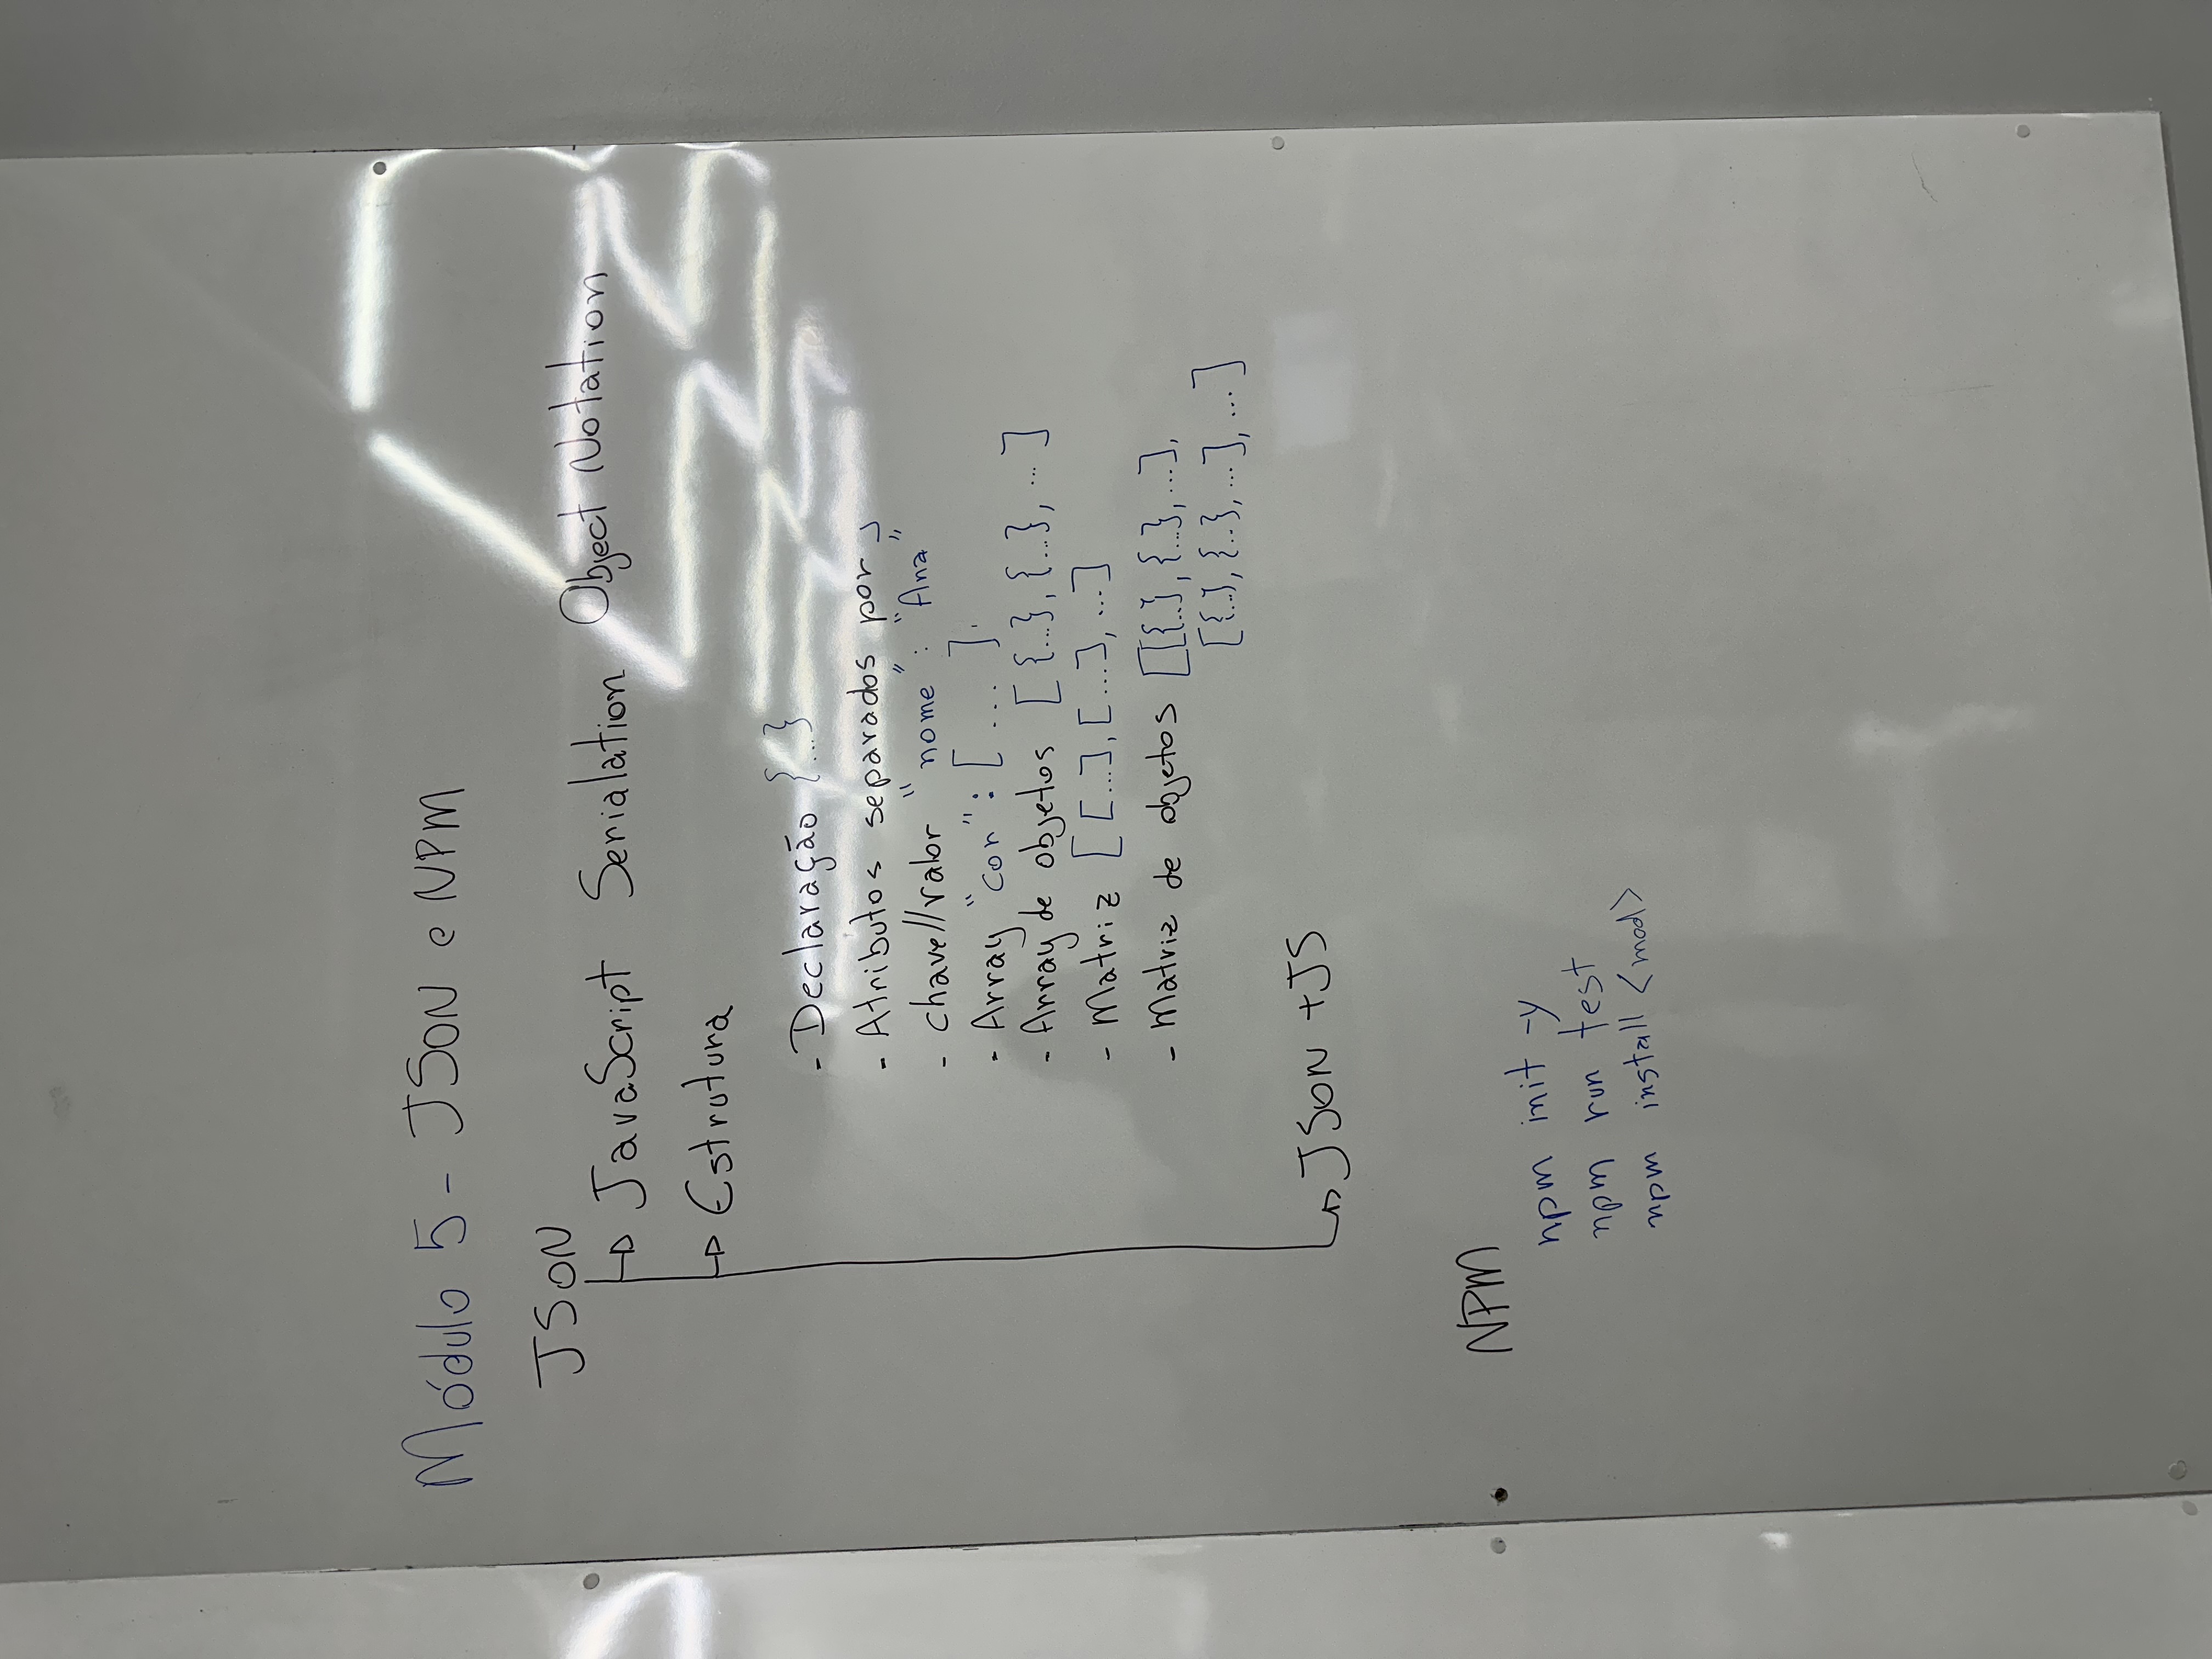 Módulo 5 - JSON e NPM
JSON
JavaScript Serialation Object Notation
Estrutura
- Declaração {...}
- Atributos separados por ,
- chave//valor "nome": "Ana"
- Array "cor": [ ... ]
- Array de objetos [ {...}, {...}, ... ]
- Matriz [ [...], [...], ... ]
- Matriz de objetos [[{..}, {...}, ...],
[{..}, {..}, ...], ... ]
JSON + JS
NPM
npm init -y
npm run test
npm install <mod>